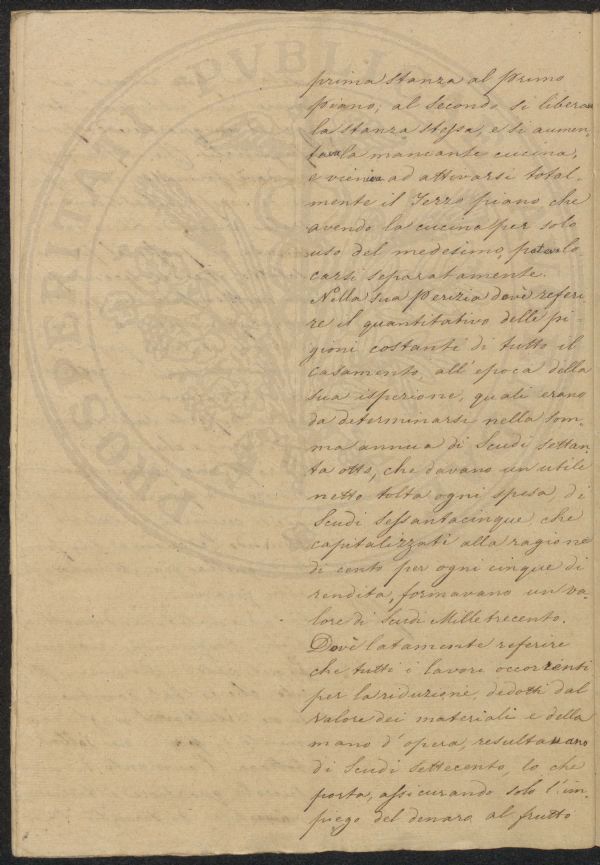 prima stanza al Primo
piano; al Secondo si libera
la stanza stessa, e si aumen-
tava la mancante cucina,
e veniva ad attivarsi total-
mente il Terzo piano che
avendo la cucina per solo
uso del medesimo, potea lo
carsi separatamente.
Nella sua Perizia dovè referi
re il quantitativo delle pi-
gioni costanti di tutto il
casamento, all'epoca della
sua ispezione, quali erano
da determinarsi nella som-
ma annua di Scudi settan-
ta otto, che davano un utile
netto tolta ogni spesa, di
Scudi Sessantacinque, che
capitalizzati alla ragione
di cento per ogni cinque di
rendita, formavano un va-
lore di Scudi Milletrecento.
Dovè latamente referire
che tutti i lavori occorrenti
per la riduzione, dedotti dal
valore dei materiali e della
mano d'opera, resultavano
di Scudi Settecento, lo che
porta, assicurando solo l'im-
piego del denaro al frutto
PROSPERITATI PVBLI